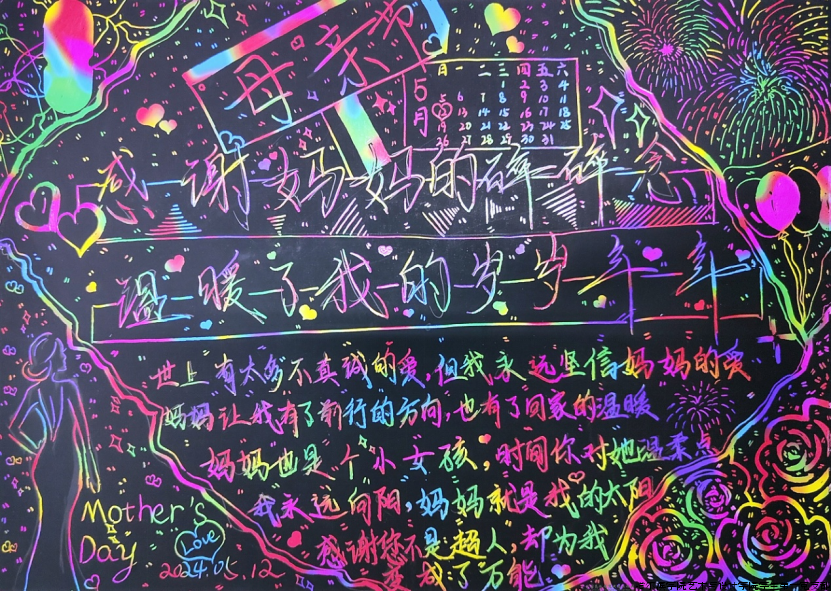 母亲节
5月
日 一 二 三 四 五 六
1 2 3 4
5 6 7 8 9 10 11
12 13 14 15 16 17 18
19 20 21 22 23 24 25
26 27 28 29 30 31
感谢妈妈的碎碎念
温暖了我的岁岁年年
世上有太多不真诚的爱,但我永远坚信妈妈的爱
妈妈让我有了前行的方向,也有了回家的温暖
妈妈也是个小女孩,时间你对她温柔点
我永远向阳,妈妈就是我的太阳
感谢你不是超人,却为我
变成了万能
Mother's
Day
Love
2024.05.12